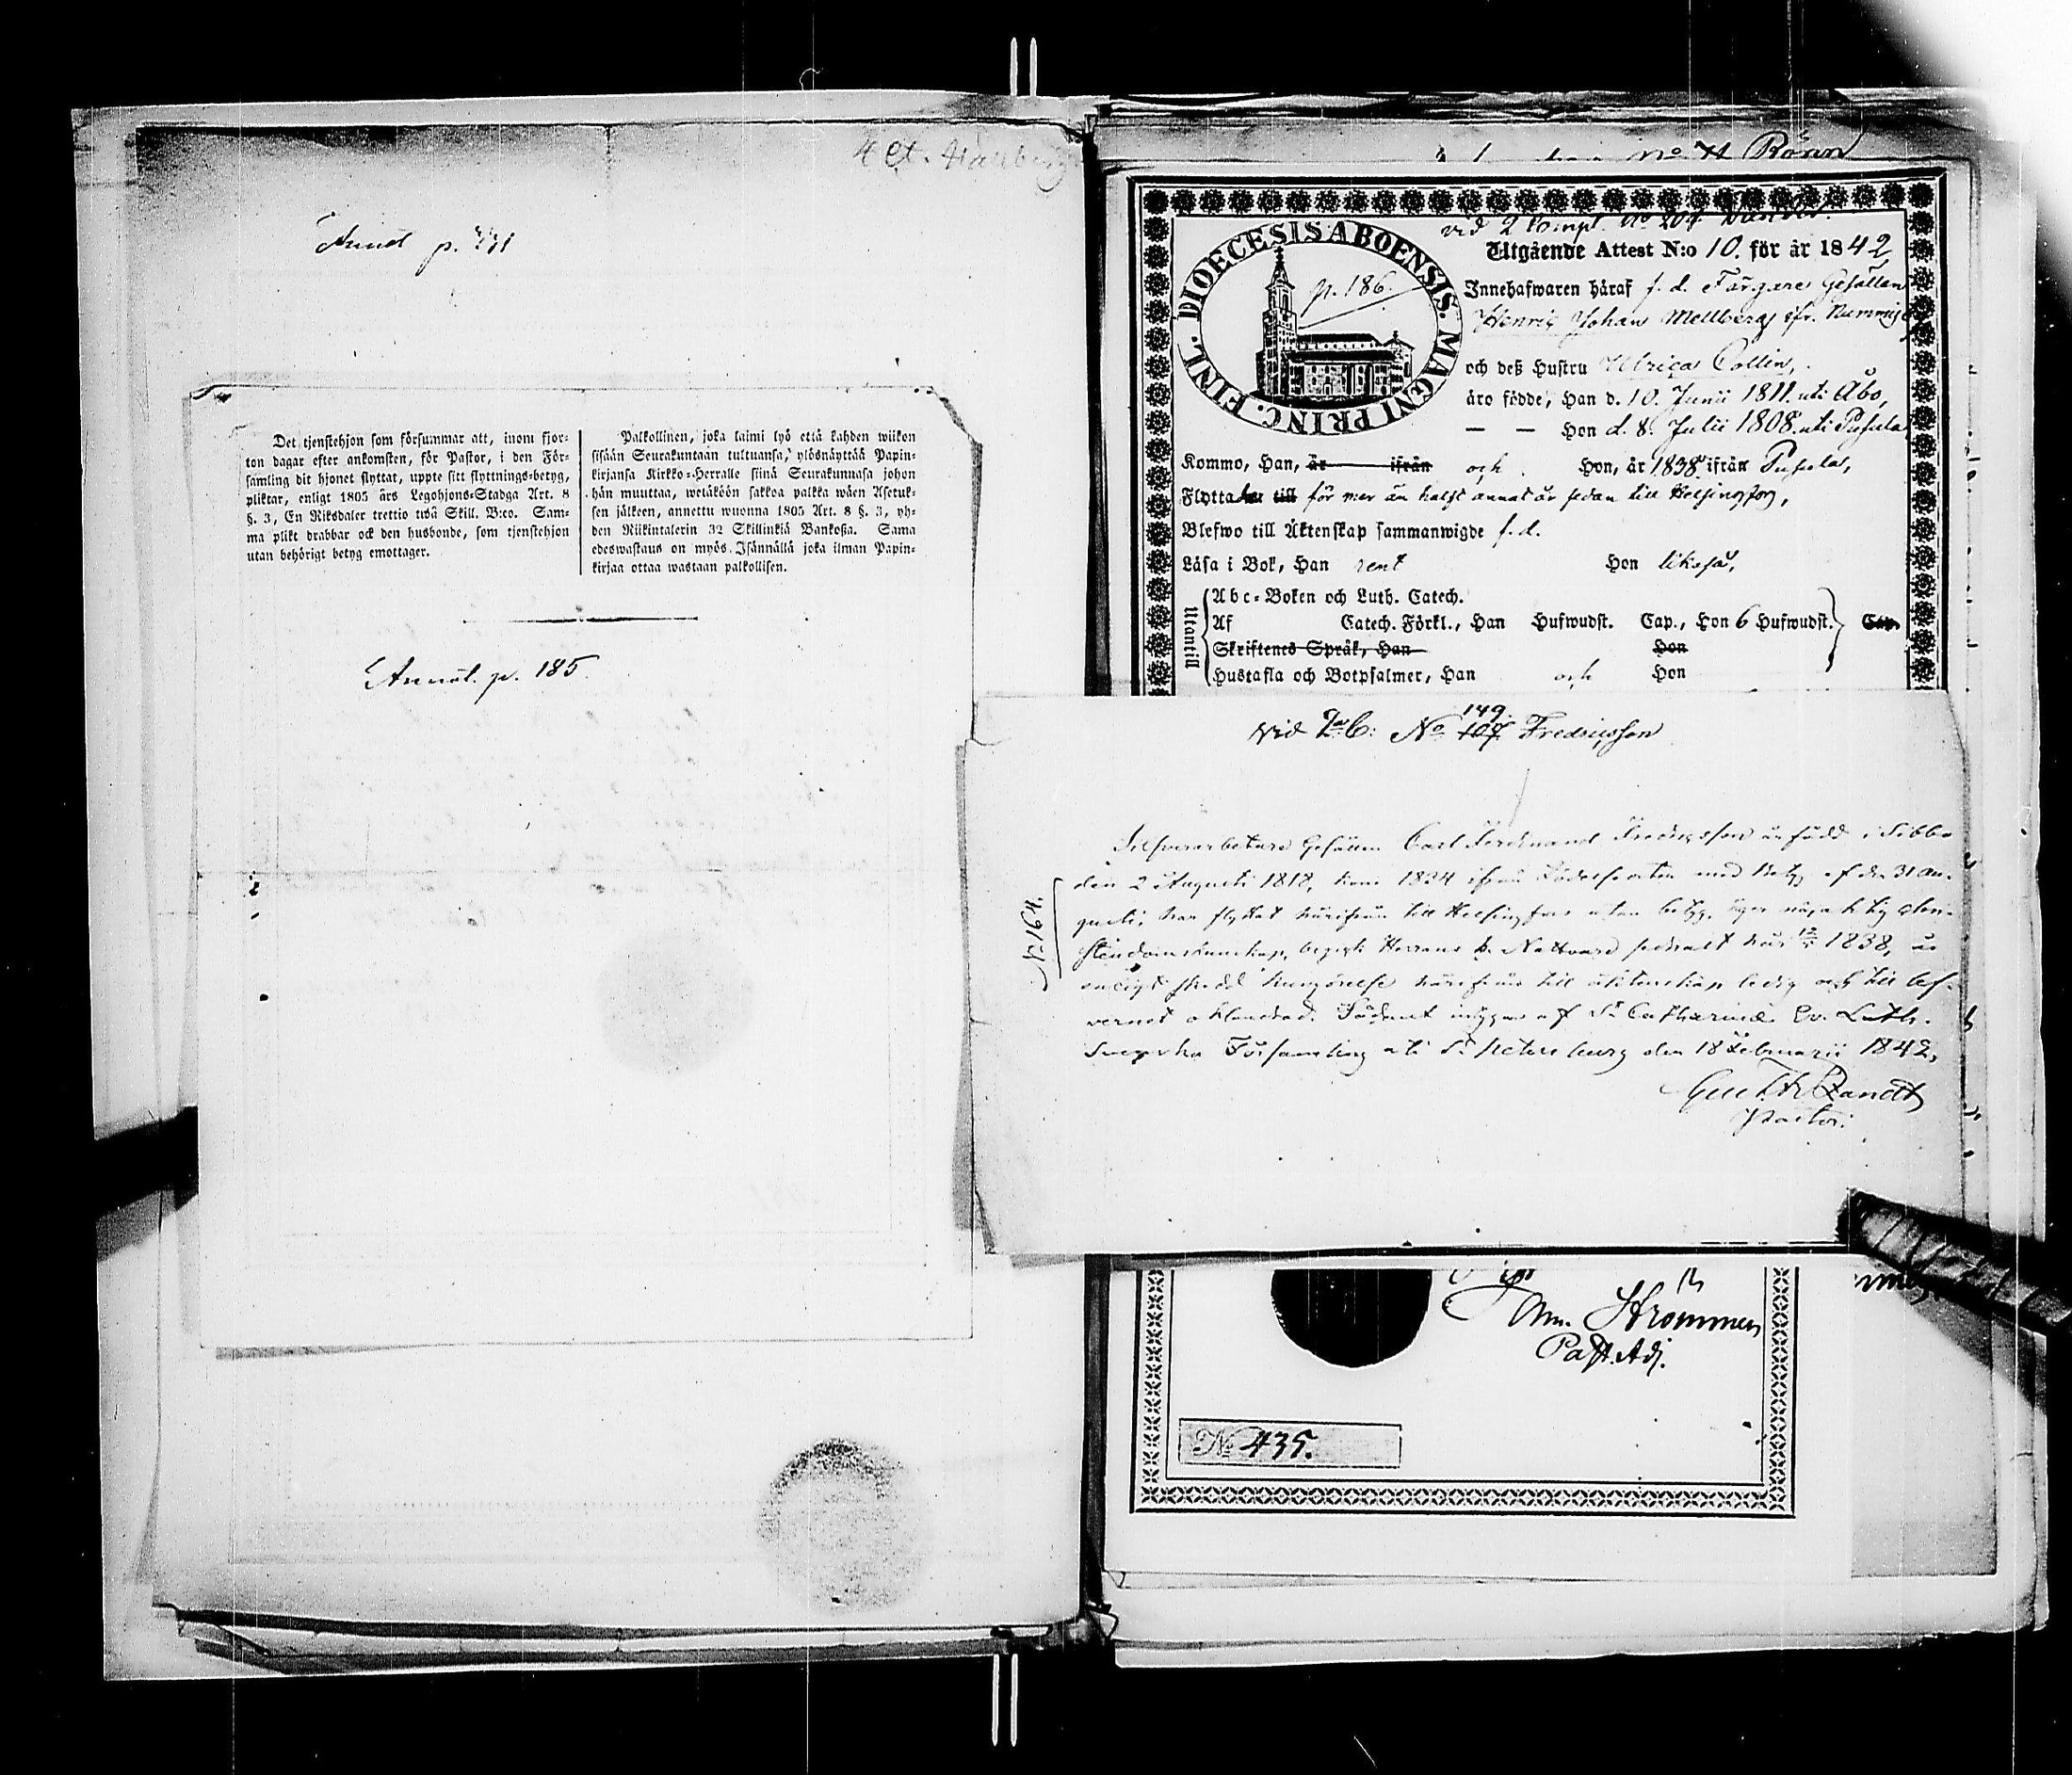 Annot p. 771
Det tjenstehjon som försummar att, inom fjor-
ton dagar efter ankomsten, för Pastor, i den För-
samling dit hjonet flyttat, uppte sitt flyttnings-betyg,
pliktar, enligt 1805 års Legohjons-Stadga Art. 8
§. 3, En Riksdaler trettio två Skill. B:co. Sam-
ma plikt drabbar ock den husbonde, som tjenstehjon
utan behörigt betyg emottager.
Palkollinen, joka laimi lyö että kahden wiikon
sisään Seurakuntaan tultuansa, ylösnäyttää Papin-
kirjansa Kirkko-Herralle siinä Seurakunnasa johon
hän muuttaa, wetäköön sakkoa palkka wäen Asetuk-
sen jälkeen, annettu wuonna 1805 Art. 8 §. 3, yh-
den Riikintalerin 32 Skillinkiä Bankosia. Sama
edeswastaus on myös Isännällä joka ilman Papin-
kirjaa ottaa wastaan palkollisen.
Annot. p. 185
No H Rönn
vid 2 Compt. No 207
DIOECESIS ABOENSIS. MAGNI PRINC. FINL.
p. 186.
Utgående Attest N:o 10. för år 1842
Innehafwaren häraf f. d. Färgare Gesällen
Henric Johan Mellberg ifr. Nummis
och deß Hustru Ulrica Collin,
äro födde, Han d. 10. Junii 1811. uti Åbo,
— — Hon d. 8. Julii 1808. uti Pusula
Kommo, Han, är ifrån och Hon, år 1838 ifrån Pusula,
Flytta till för mer än halft annat år sedan till Helsingfors,
Blefwo till Äktenskap sammanwigde f. d.
Läsa i Bok, Han rent Hon likaså,
Utantill
Abc-Boken och Luth. Catech.
Af Catech. Förkl., Han Hufwudst. Cap., Hon 6 Hufwudst. Cap.
Skriftenes Språk, Han Hon
Hustafla och Botpsalmer, Han och Hon
149
vid 2a C: No 107 Fredricsson
No 164.
Silfverarbetare Gesällen Carl Ferdinand Fredricsson är född i Sibbo
den 2 Augusti 1818, kom 1834 ifrån Födelseorten med betyg af den 31 au-
gusti, har flyttat härifrån till Helsingfors utan betyg, äger nöjaktig chri-
stendomskunskap, begick Herrans H. Nattvard sednast här 1838, är
enligt skedd kungörelse härifrån till äktenskap ledig och till lef-
vernet oklandrad. Sådant intygas af St Catharinæ Ev. Luth.
Svenska Församling uti St Petersburg den 18 Februarii 1842,
Pastor.
Am. Strömmer
Past. Adj.
No 435.